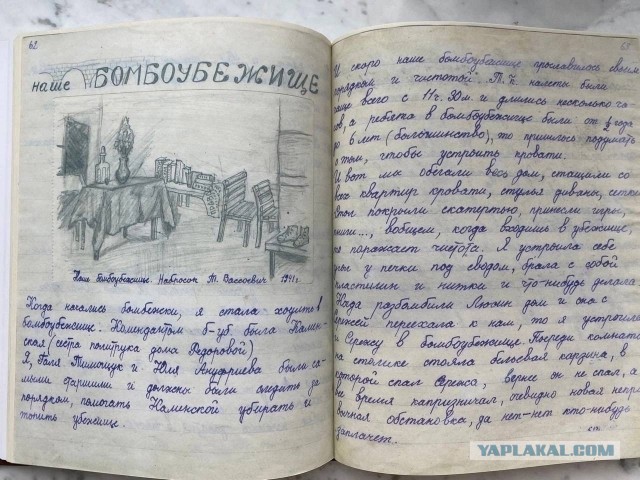 62
наше БОМБОУБЕЖИЩЕ
Наше бомбоубежище. Набросок Т. Вассоевич 1941 г.
Когда начались бомбежки, я стала ходить в
бомбоубежище. Комендантом б-уб. была Калин-
ская (сестра политрука дома Федоровой)
Я, Галя Тимощук и Юля Ануфриева были са-
мыми старшими и должны были следить за
порядком, помогать Калинской убирать и
топить убежище.
И скоро наше бомбоубежище прославилось своим
порядком и "чистотой". Т.к. налеты были
чаще всего с 11 ч. 30 м. и длились несколько ча-
сов, а ребята в бомбоубежище были от ½ года
до 6 лет (большинство), то пришлось подумать
о том, чтобы устроить кровати.
И вот мы обегали весь дом, стащили со
всех квартир кровати, стулья диваны,
столы покрыли скатертью, принесли игры,
книги..., вобщем, когда входишь в убежище,
поражает чистота. Я устроила себе
у печки под сводом, брала с собой
пластилин и нитки и что-нибудь делала.
Когда разбомбили Люсин дом и она с
Сережей переехала к нам, то я устроила
и Сережу в бомбоубежище. Посреди комнаты
на столике стояла бельевая корзина, в
которой спал Сережа, вернее он не спал, а
все время капризничал, очевидно новая непри-
вычная обстановка, да нет-нет кто-нибудь
заплачет.
YAPLAKAL.COM